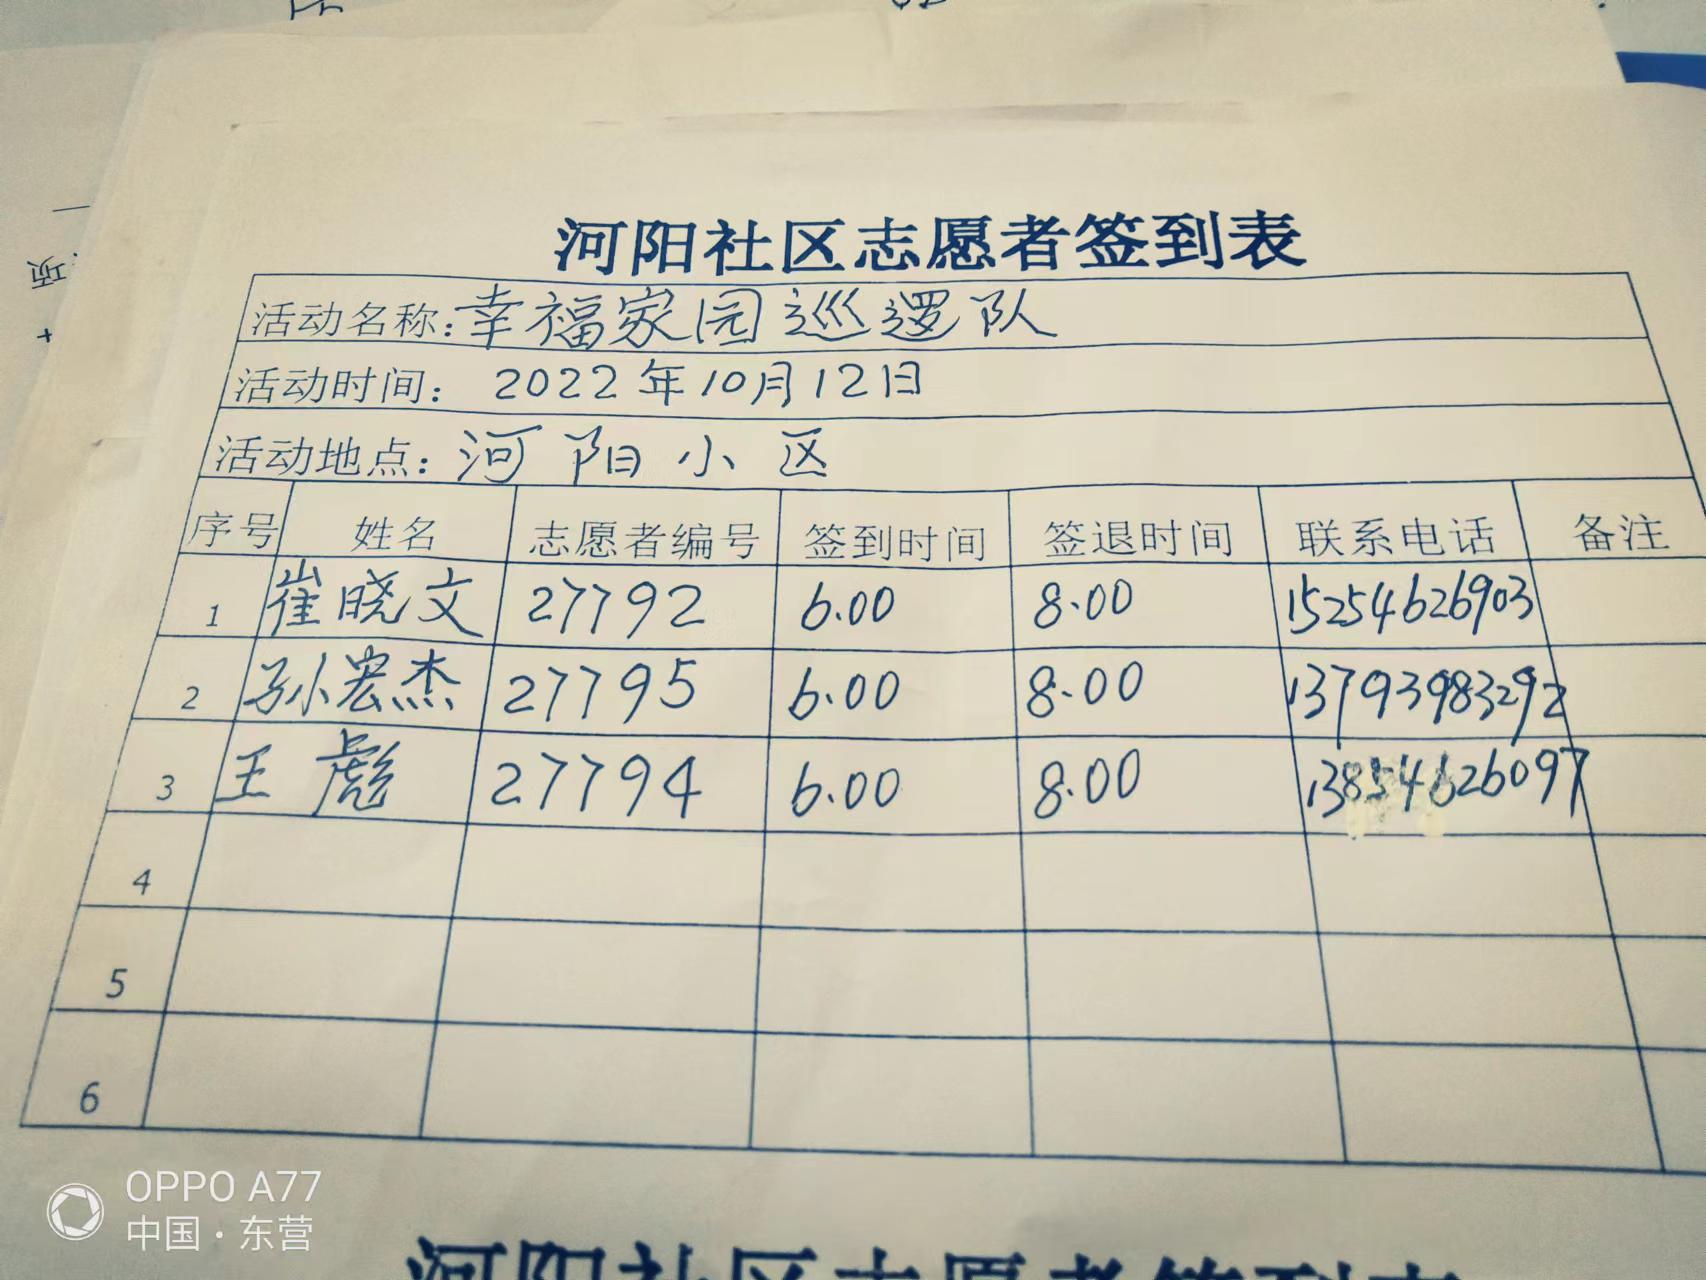 项
河阳社区志愿者签到表
活动名称:幸福家园巡逻队
活动时间: 2022年10月12日
活动地点: 河阳小区
序号 姓名 志愿者编号 签到时间 签退时间 联系电话 备注
1 崔晓文 27792 6.00 8.00 15254626903
2 孙宏杰 27795 6.00 8.00 13793983292
3 王彪 27794 6.00 8.00 13854626097
4
5
6
OPPO A77
中国·东营
河阳社区志愿者签到表